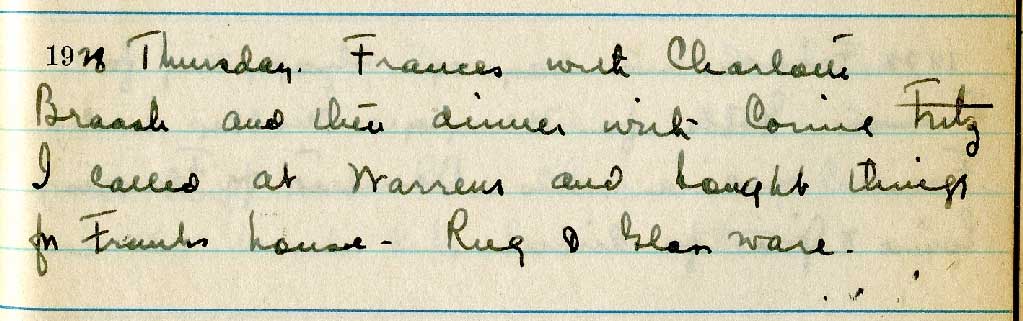 1928 Thursday. Frances with Charlotte
Braash and then dinner with Corine Fritz
I called at Warrens and bought things
for Franks house - Rug & Glass ware.